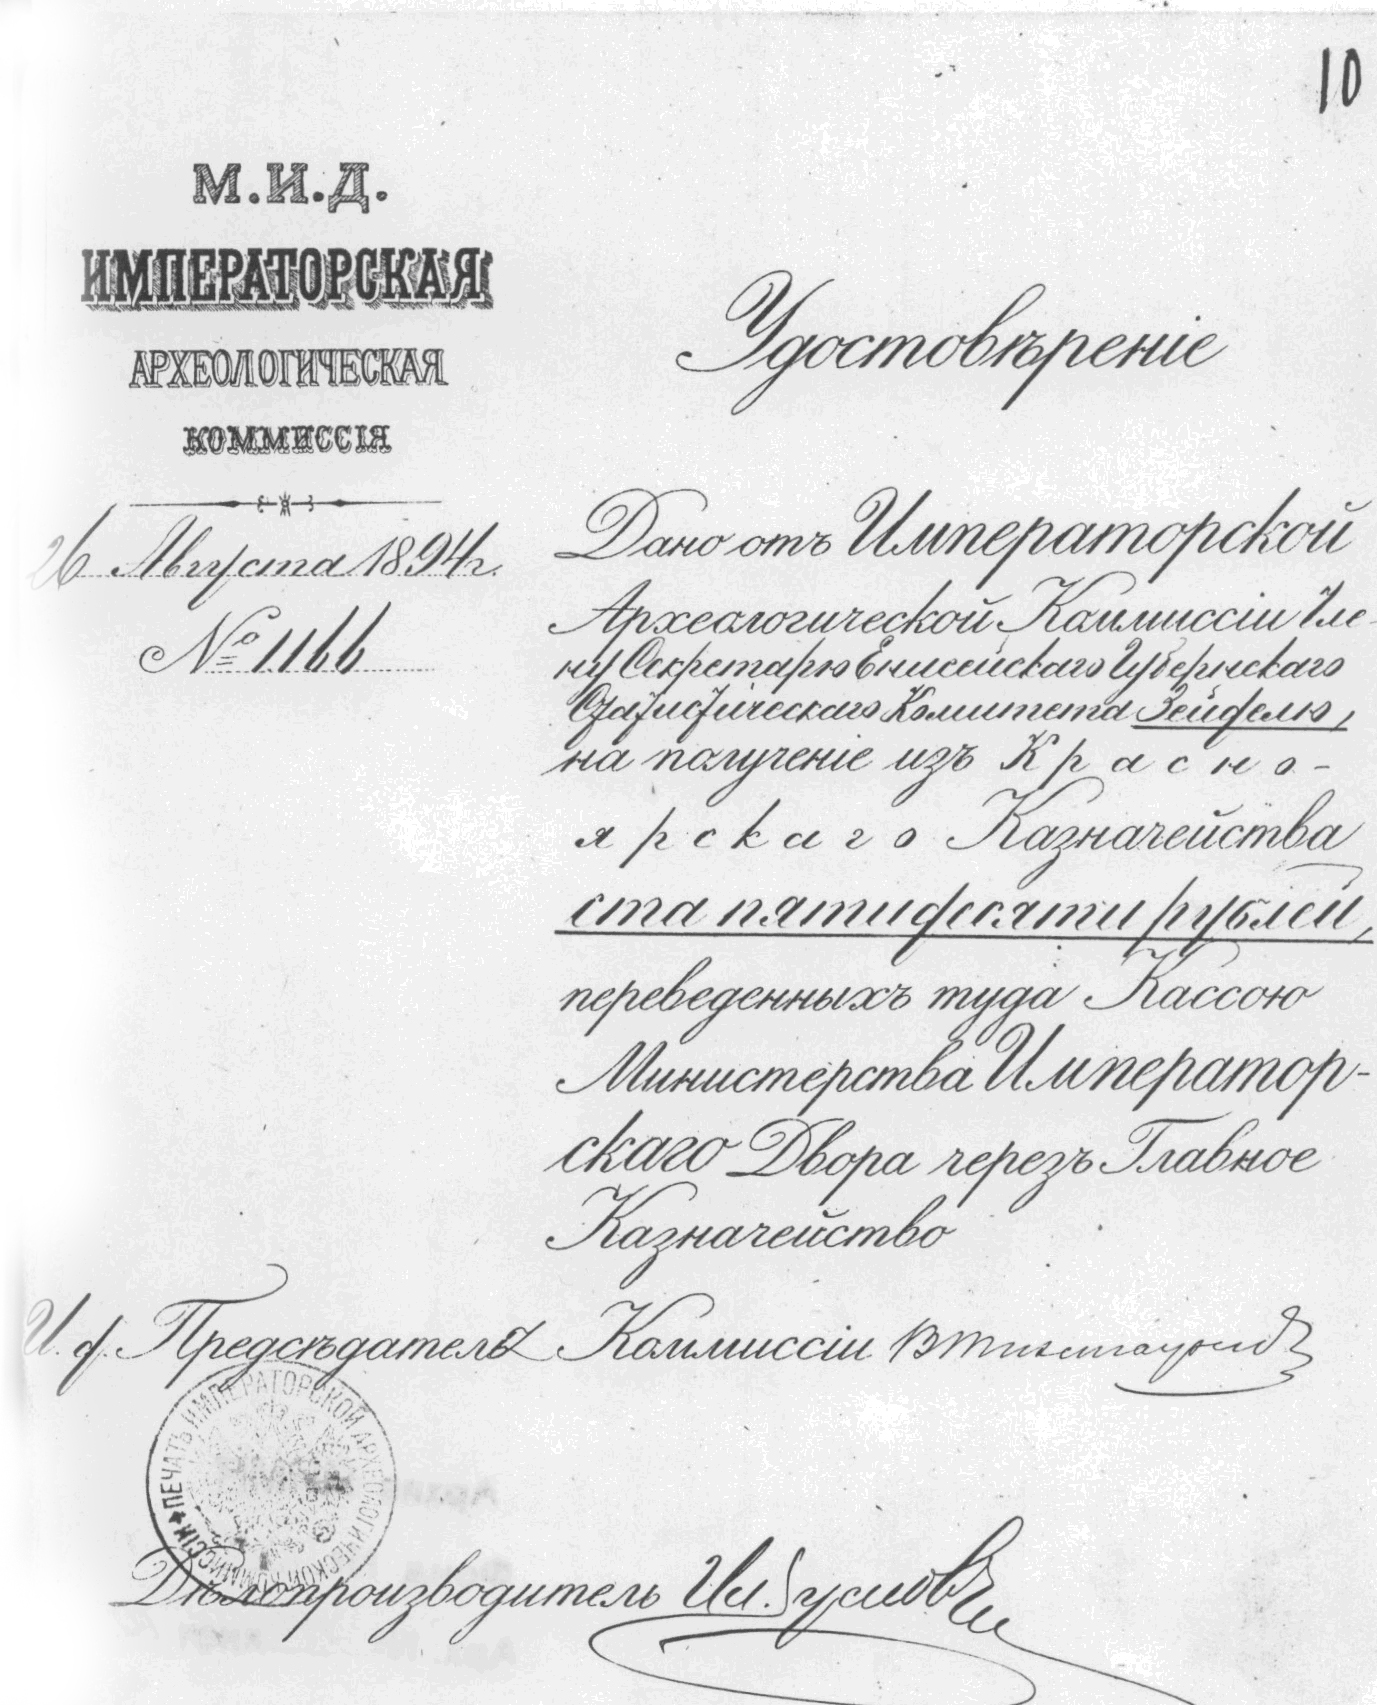 10
М.И.Д.
ИМПЕРАТОРСКАЯ
АРХЕОЛОГИЧЕСКАЯ
КОММИССІЯ
26 Августа 1894 г.
№ 1166
Удостовѣреніе
Дано отъ Императорской
Археологической Коммиссіи Чле-
ну Секретарю Енисейскаго Губернскаго
Статистическаго Комитета Зейфелю,
на полученіе изъ Красно-
ярскаго Казначейства
ста пятидесяти рублей,
переведенныхъ туда Кассою
Министерства Император-
скаго Двора черезъ Главное
Казначейство
И. ф. Предсѣдателя Коммиссіи В Тизенгаузенъ
ПЕЧАТЬ ИМПЕРАТОРСКОЙ АРХЕОЛОГИЧЕСКОЙ КОММИССІИ
Дѣлопроизводитель Ив. Сусловъ